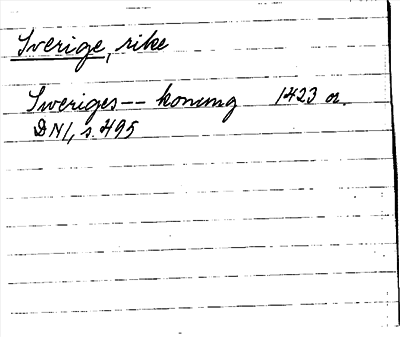 Sverige, rike
Sweriges -- konung 1423 or.
DN1, s. 495